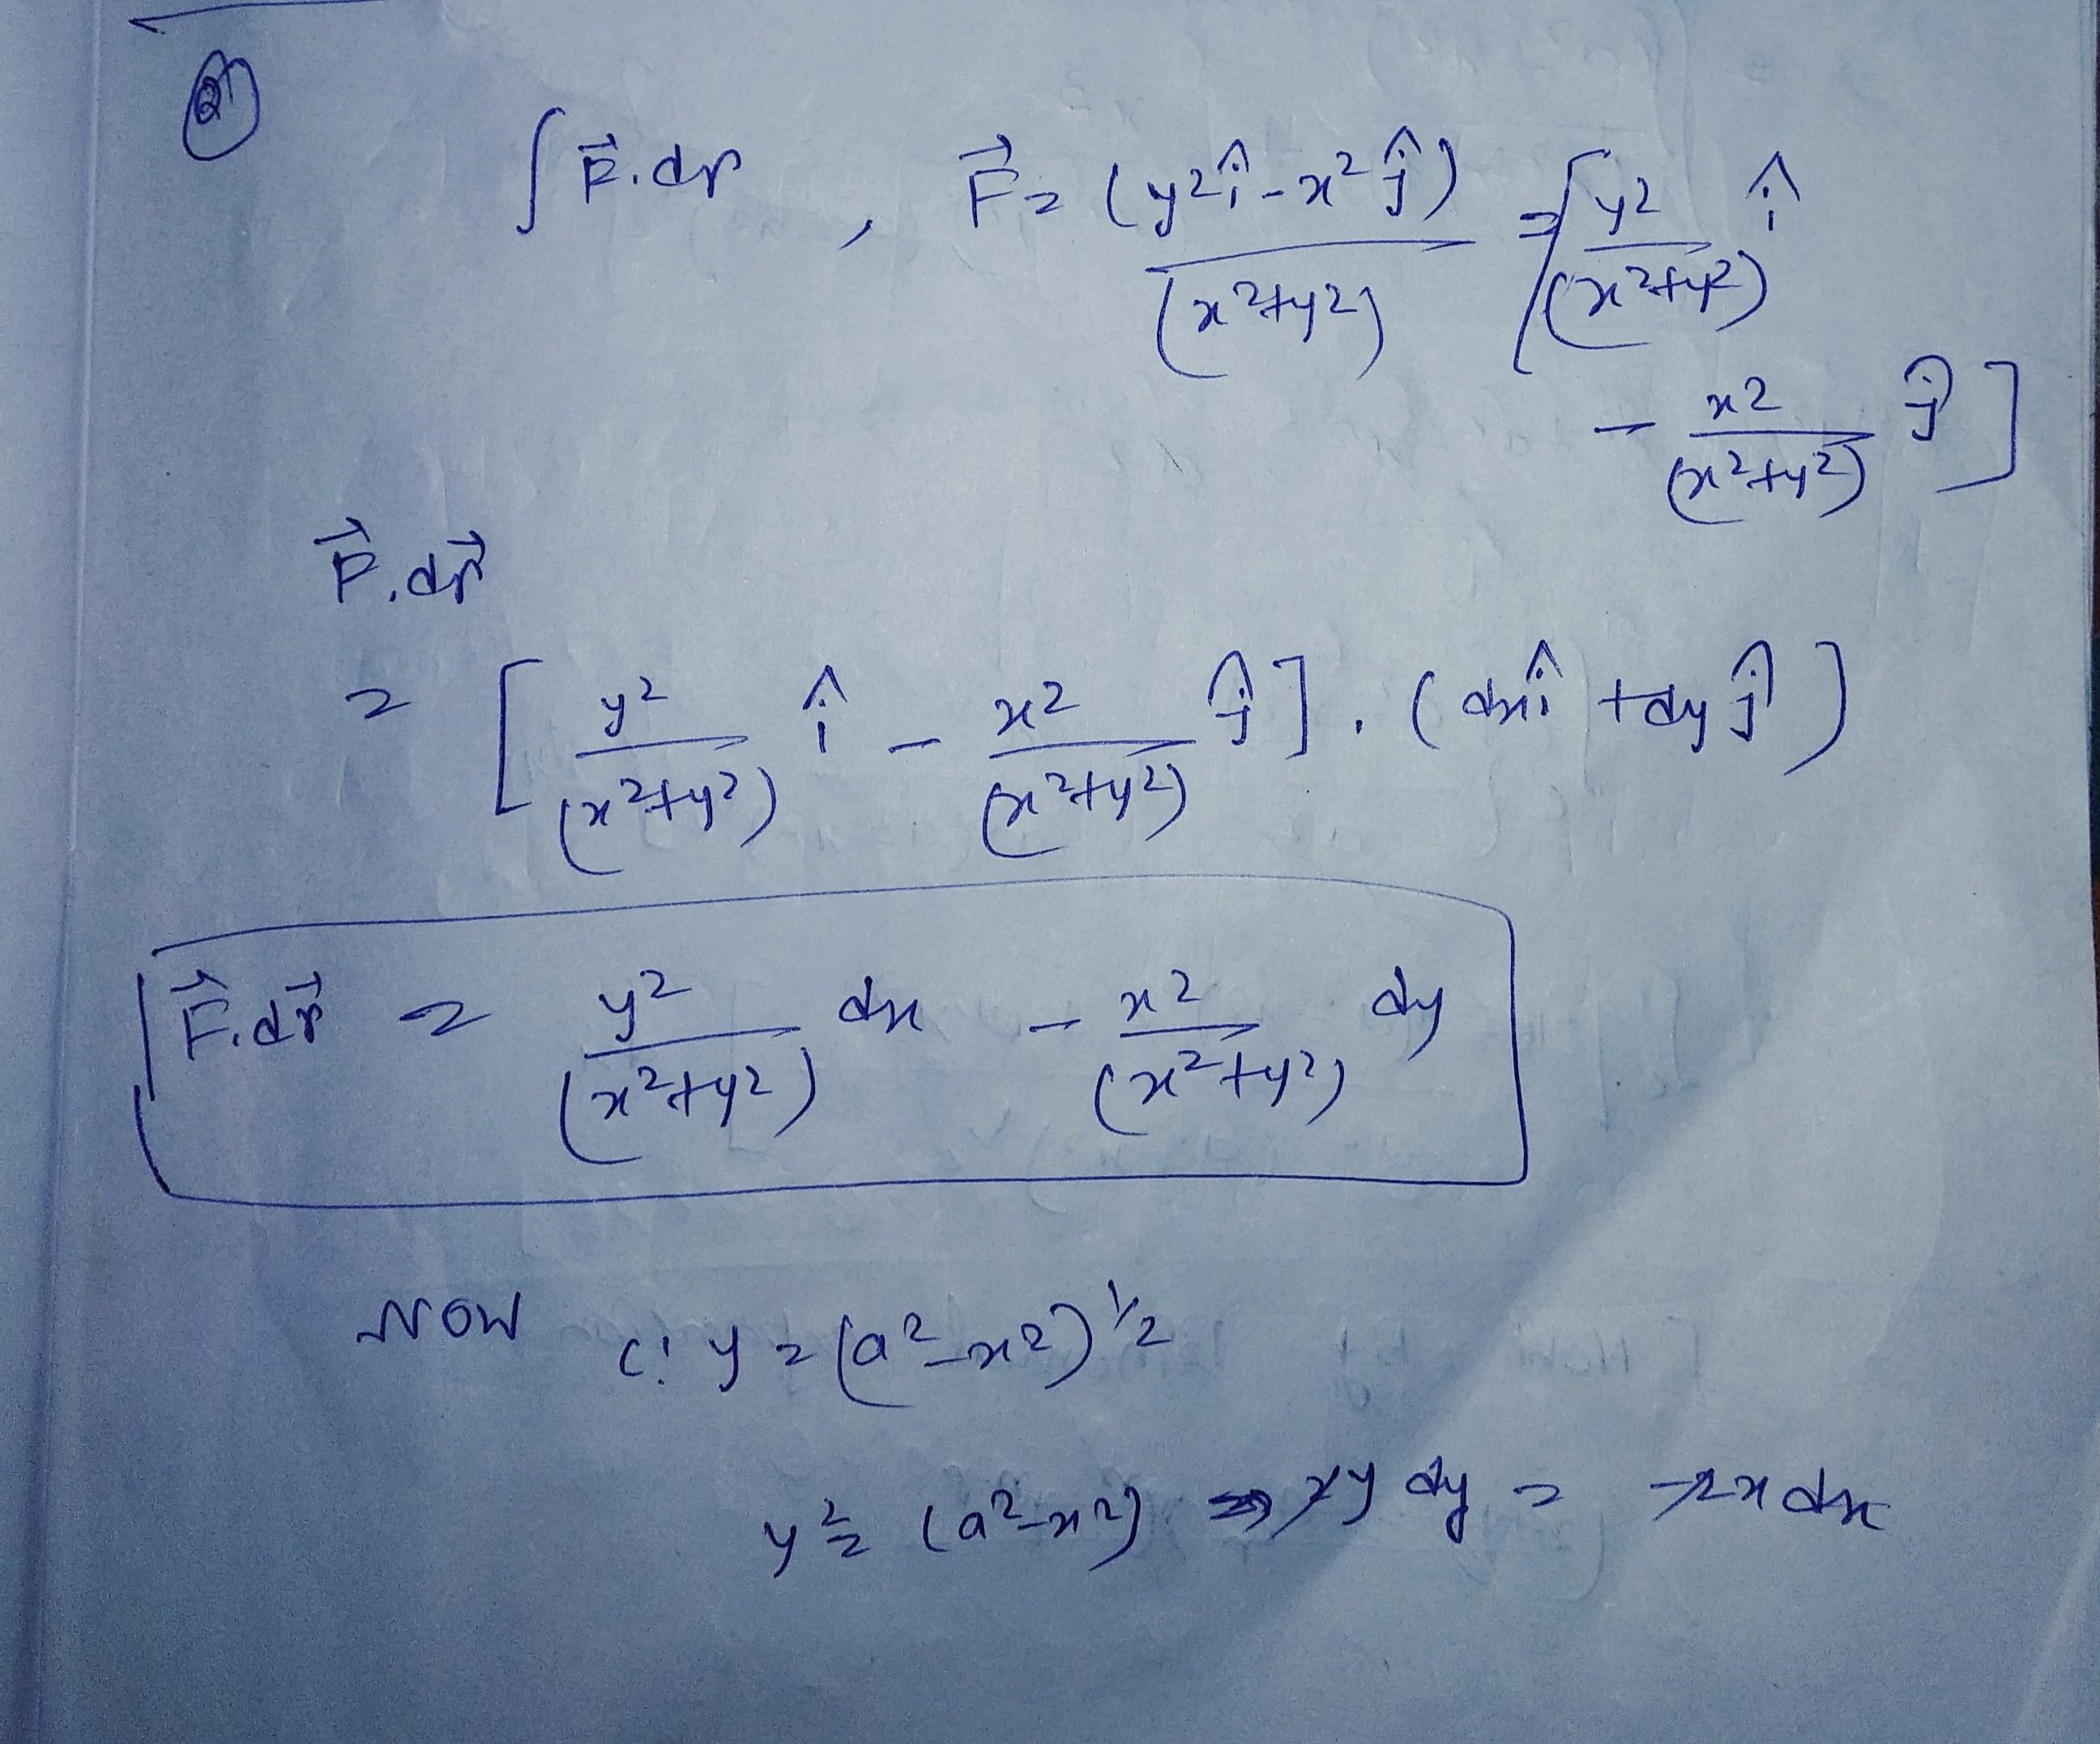 ②
∫ F⃗.dr , F⃗ = (y²î - x²ĵ) / (x²+y²) = [ y²/(x²+y²) î
- x²/(x²+y²) ĵ ]
F⃗.dr⃗
= [ y²/(x²+y²) î - x²/(x²+y²) ĵ ] . (dxî + dyĵ)
F⃗.dr⃗ = y²/(x²+y²) dx - x²/(x²+y²) dy
NOW C: y = (a²-x²)^1/2
y² = (a²-x²) ⇒ 2y dy = -2x dx